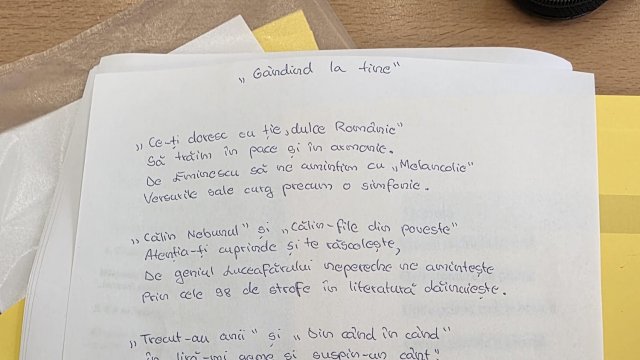 „Gândind la tine"
„Ce-ți doresc eu ție, dulce Românie"
Să trăim în pace și în armonie.
De Eminescu să ne amintim cu „Melancolie"
Versurile sale curg precum o simfonie.
„Călin Nebunul" și „Călin-file din poveste"
Atenția-ți cuprinde și te răscolește,
De geniul Luceafărului nepereche ne amintește
Prin cele 98 de strofe în literatură dăinuiește.
„Trecut-au anii" și „Din când în când"
în liră-mi geme și suspin-un cânt"